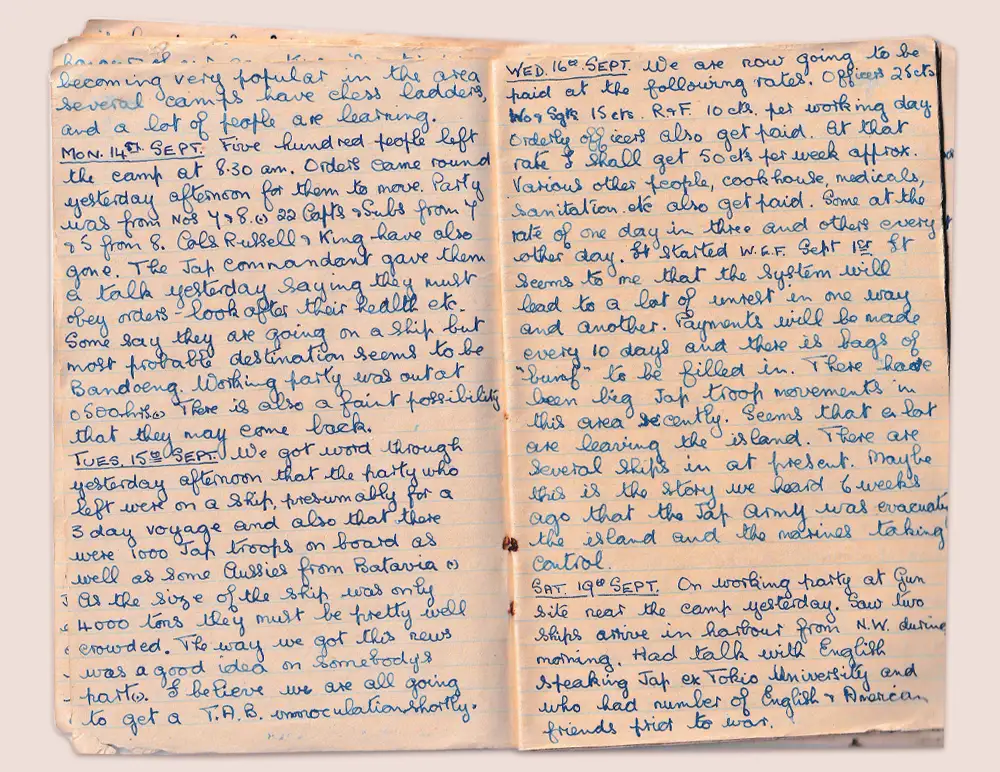 becoming very popular in the area
several camps have chess ladders,
and a lot of people are learning.
MON. 14TH. SEPT. Five hundred people left
the camp at 8.30 am. Orders came round
yesterday afternoon for them to move. Party
was from Nos 7 & 8. 22 Capts & Subs from 7
& 5 from 8. Cols Russell & King have also
gone. The Jap commandant gave them
a talk yesterday saying they must
obey orders - look after their health etc.
Some say they are going on a ship but
most probable destination seems to be
Bandoeng. Working party was out at
0500hrs. There is also a faint possibility
that they may come back.
TUES. 15TH SEPT. We got word through
yesterday afternoon that the party who
left were on a ship, presumably for a
3 day voyage and also that there
were 1000 Jap troops on board as
well as some Aussies from Batavia.
As the size of the ship was only
4000 tons they must be pretty well
crowded. The way we got this news
was a good idea on somebodys
part. I believe we are all going
to get a T.A.B. innoculation shortly.
WED. 16TH. SEPT. We are now going to be
paid at the following rates. Officers 25cts
Wo & Sgts 15cts. R&F. 10cts. per working day
Orderly officers also get paid. At that
rate I shall get 50cts per week approx.
Various other people, cookhouse, medicals,
sanitation etc also get paid. Some at the
rate of one day in three and others every
other day. It started W.E.F. Sept 1ST. It
seems to me that the system will
lead to a lot of unrest in one way
and another. Payments will be made
every 10 days and there is bags of
"bumf" to be filled in. There have
been big Jap troop movements in
this area recently. Seems that a lot
are leaving the island. There are
several ships in at present. Maybe
this is the story we heard 6 weeks
ago that the Jap army was evacuating
the island and the marines taking
control.
SAT. 19TH SEPT. On working party at Gun
site near the camp yesterday. Saw two
ships arrive in harbour from N.W. during
morning. Had talk with English
speaking Jap ex Tokio University and
who had number of English & American
friends prior to war.